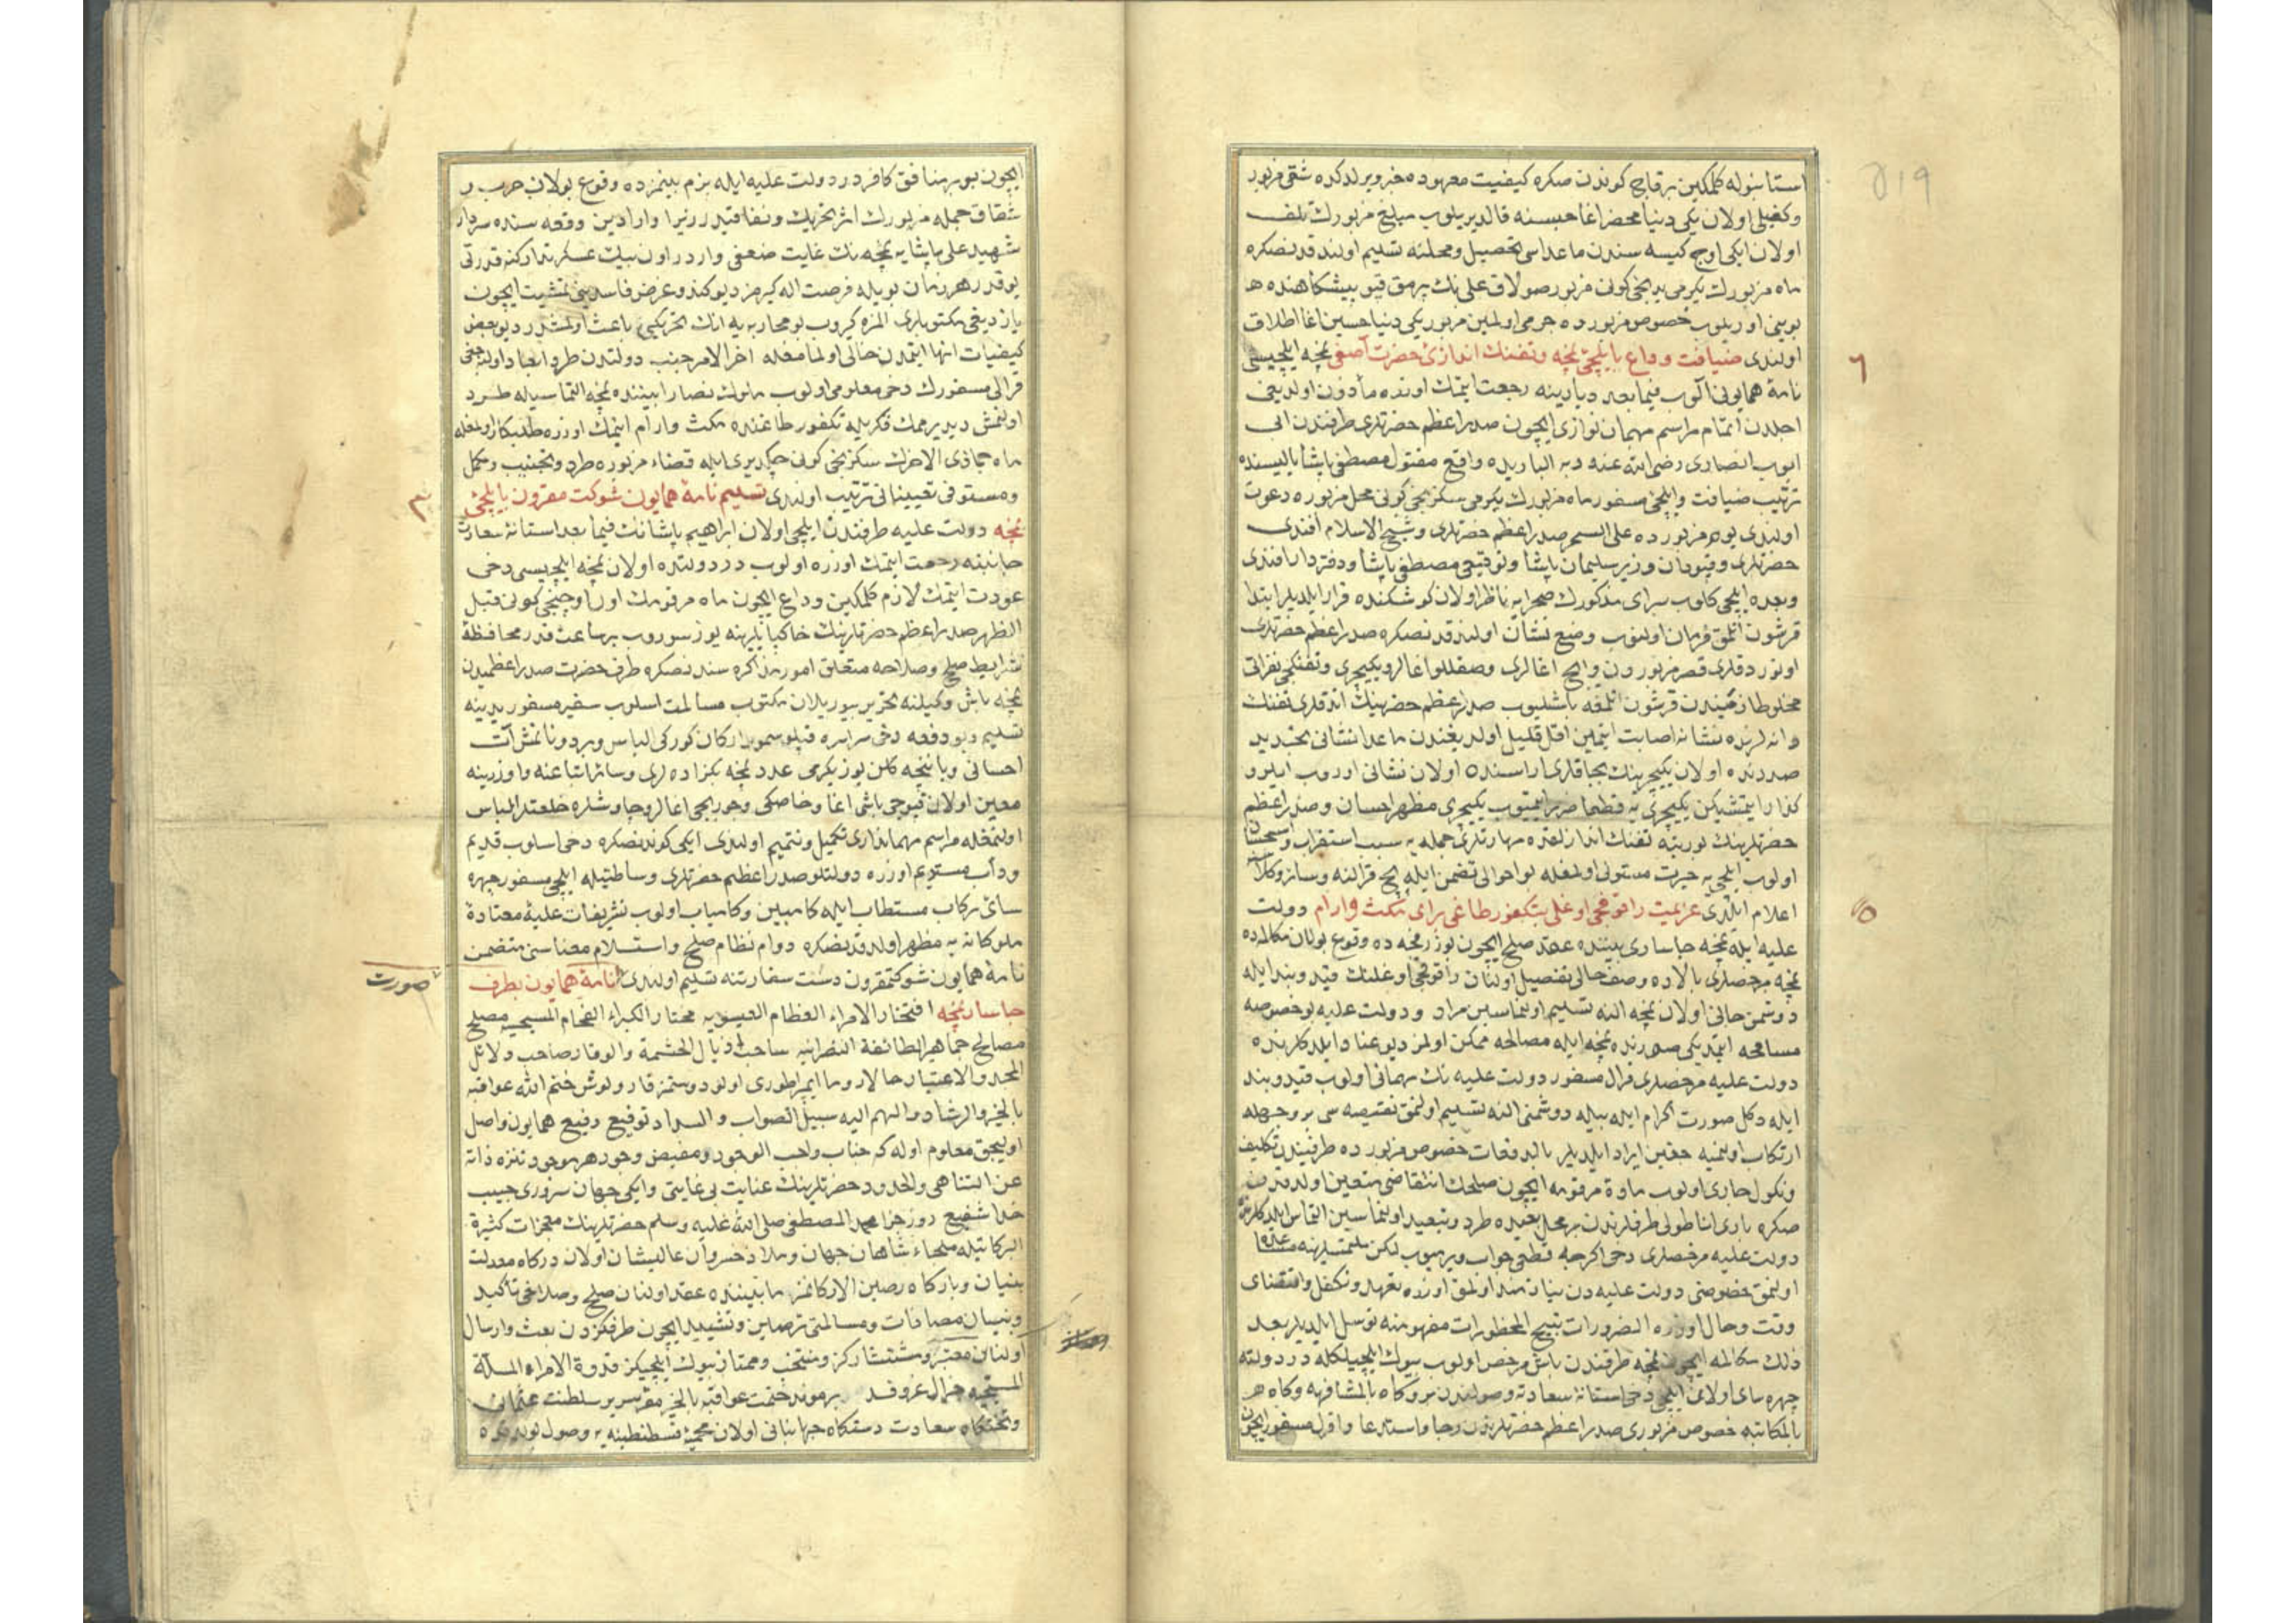 استانبوله كلمكين برقاج كوندن صكره كيفيت معهوده خبر ويرلدكده شقئ مزبور
وكفيلى اولان يكى دنيا محضر اغا حبسنه قالديريلوب مبلغ مزبورك تلف
اولان ايكى اوج كيسه سندن ماعداسى تحصيل ومحلنه تسليم اولندقدنصكره
ماه مزبورك يكرمى يدنجى كونى مزبور صولاق على نك پرمق قپو پيشكاهنده
بوينى اوريلوب خصوص مزبورده جرمى اولمين مزبور يكى دنيا حسين اغا اطلاق
اولندى ضيافت وداع با ايلچئ نمچه وتفنك اندازئ حضرت آصفى نمچه ايلچيسى
نامهٔ همايونى آلوب فيما بعد ديارينه رجعت ايتمك اوزره مأذون اولديغى
اجلدن اتمام مراسم مهمان نوازى ايچون صدراعظم حضرتلرى طرفندن ابى
ايوب انصارى رضى الله عنه ده واقع مقتول مصطفى پاشا ياليسنده
ترتيب ضيافت وايلچئ مسفور ماه مزبورك يكرمى سكزنجى كونى محل مزبوره دعوت
اولندى يوم مزبورده على السحر صدراعظم حضرتلرى وشيخ الاسلام افندى
حضرتلرى وقپودان وزير سليمان پاشا وتوقيعى مصطفى پاشا ودفتردار افندى
وبعده ايلچى كلوب سراى مذكورك صحرايه ناظر اولان كوشكنده قرار ايلديلر ابتدا
قرشون اتلمق فرمان اولنوب وضع نشان اولندقدنصكره صدراعظم حضرتلرى
اوتوردقلرى قصر مزبوردن وايچ اغالرى وصقللو اغالر ويكيچرى وتفنكچى نفراتى
مخلوط زميندن قرشون اتلمغه باشليوب صدراعظم حضرتلرينك اتدقلرى تفنك
دانه لرنده نشانه اصابت ايتمين اقل قليل اولديغندن ماعدا نشانى
صددنده اولان يكيچرينك بجاقلرى اراسنده اولان نشانى اوروب ايلرو
كذار ايتمشيكن يكيچرى يه قطعا ضرر ايتميوب يكيچرى مظهر احسان وصدراعظم
حضرتلرينك تفنك اندازلقده مهارتلرى جمله يه سبب استغراب واستحسان
اولوب ايلچى يه حيرت مستولى اولمغله بو احوالى تضمن ايله قرالنه وسائر وكلاسنه
اعلام ايلدى عزيمت راقوفچى اوغلى بتكفور طاغى براى مكث وآرام دولت
عليه ايله نمچه چاسارى بيننده عقد صلح ايچون وقوع بولان مكالمه ده
نمچه مرخصلرى بالاده وصف حالى تفصيل اولنان راقوفچى اوغلنك قيد وبند ايله
دوشمن جانى اولان نمچه النه تسليم اولنماسين مراد ودولت عليه بو خصوصه
مسامحه ايتمديكى صورتده نمچه ايله مصالحه ممكن اولمز ديو عناد ايلدكلرنده
دولت عليه مرخصلرى قرال مسفور دولت عليه نك مهمانى اولوب قيد وبند
ايله دكل صورت اكرام ايله بيله دوشمنى النه تسليم اولنمق نقيصه سى بر وجهله
ارتكاب اولنميه جغين ايراد ايلديلر بالدفعات خصوص مزبورده طرفيندن تكليف
ونكول جارى اولوب مادهٔ مرقومه ايچون صلحك انتقاضى متعين اولدقدن
صكره بارى اناطولى طرفلرندن بر محل بعيده طرد وتبعيد اولنماسين التماس ايلدكلرنده
دولت عليه مرخصلرى دخى اكرچه قطعى جواب ويرميوب لكن ملتمسلرينه مساعده
اولنمق خصوصنى دولت عليه دن نيازمند اولمق اوزره تعهد وتكفل واقتضاى
وقت وحال اوزره الضرورات تبيح المحظورات مفهومنه توسل ايلديلر بعد
ذلك مكالمه ايچون نمچه طرفندن باش مرخص اولوب بيوك ايلچيلكله در دولته
چهره ساى اولان ايلچى دخى استانهٔ سعادته وصولندن برو كاه بالمشافهه وكاه
بالمكاتبه خصوص مزبورى صدراعظم حضرتلرندن رجا واستدعا وقرال مسفور ايچون
ايچون بو بر منافق كافردر دولت عليه ايله بزم بينمزده وقوع بولان حرب و
شقاق جمله مزبورك اثر تحريك ونفاقيدر زيرا وارادين وقعه سنده سردار
شهيد على پاشايه نمچه نك غايت ضعفى واردر اون بيك عسكر تداركنه قدرتى
يوقدر هر زمان بويله فرصت اله كيرمز ديو كندو غرض فاسدينى تمشيت ايچون
يازديغى مكتوبلرى المزه كيروب بو محاربه يه انك تحريكى باعث اولمشدر ديو بعض
كيفيات انها ايتمدن خالى اولمامغله اخر الامر جنب دولتدن طرد وابعاد اولنه جغى
قرالى مسفورك دخى معلومى اولوب ملوك نصارا بيننده نمچه التماسيله طرد
اولنمش ديديرمامك فكريله تكفور طاغنده مكث وآرام ايتمك اوزره طلبكار اولمغله
ماه جماذى الاخرك سكزنجى كونى چكديرى ايله قضاء مزبوره طرد وتجنيب ومكمل
ومستوفى تعييناتى ترتيب اولندى تسليم نامهٔ همايون شوكت مقرون با ايلچئ
نمچه دولت عليه طرفندن ايلچى اولان ابراهيم پاشانك فيما بعد استانهٔ سعادت
جانبنه رجعت ايتمك اوزره اولوب در دولتده اولان نمچه ايلچيسى دخى
عودت ايتمك لازم كلمكين وداع ايچون ماه مرقومك اون اوچنجى كونى قبل
الظهر صدراعظم حضرتلرينك خاكپايلرينه يوز سوروب بر ساعت قدر محافظهٔ
شرايط صلح وصلاحه متعلق امور مذاكره سندنصكره طرف حضرت صدراعظميدن
نمچه باش وكيلنه تحرير بيوريلان مكتوب مسالمت اسلوب سفير مسفور يدينه
تسليم وبو دفعه دخى سراسره قپلو سمور اركان كوركى الباس وبر دونانمش آت
احسانى وياننجه كلن يوز يكرمى عدد نمچه بكزاده لرى وسائر اتباعنه واوزرينه
معين اولان قپوجى باشى اغا وخاصكى وچوربجى اغالر وچاوشلره خلعتلر الباس
اولنمغله مراسم مهماندارى تكميل وتتميم اولندى ايكى كوندنصكره دخى اسلوب قديم
ودأب مستديم اوزره دولتلو صدراعظم حضرتلرى وساطتيله ايلچى مسفور چهره
ساى ركاب مستطاب ايله كامبين وكامياب اولوب تشريفات عليهٔ معتادهٔ
ملوكانه يه مظهر اولدقدنصكره دوام نظام صلح واستسلام معناسنى متضمن
نامهٔ همايون شوكتمقرون دست سفارتنه تسليم اولندى نامهٔ همايون بطرف
صورت
چاسار نمچه افتخار الامراء العظام العيسويه مختار الكبراء الفخام المسيحيه مصلح
مصالح جماهير الطائفة النصرانيه ساحب اذيال الحشمة والوقار صاحب دلائل
المجد والاعتبار حالا روما ايمپراطورى اولو دوستمز قارولوش ختم الله عواقبه
بالخير والرشاد والهم اليه سبيل الصواب والسداد توقيع رفيع همايون واصل
اوليجق معلوم اوله كه جناب واجب الوجود ومفيض وجود هر موجود تنزه ذاته
عن التناهى والحدود حضرتلرينك عنايت بى غايتى وايكى جهان سرورى حبيب
خدا شفيع روز جزا محمد المصطفى صلى الله عليه وسلم حضرتلرينك معجزات كثيرة
البركاتيله ملجاء شاهان جهان وملاذ خسروان عاليشان اولان دركاه معدلت
بنيان وباركاه رصين الاركانمز مابيننده عقد اولنان صلح وصلاحى تأكيد
وبنيان مصافات ومسالمتى ترصين وتشييد ايچون طرفكزدن بعث وارسال
اولنان معتبر ومستشاركز ومنتخب وممتاز بيوك ايلچيكز قدوة الامراء الملة
المسيحيه جنرال غروف د برموند ختمت عواقبه بالخير مقر سرير سلطنت عثمانى
وتختكاه سعادت دستكاه جهانبانى اولان محميهٔ قسطنطينيه يه وصول بولدقده